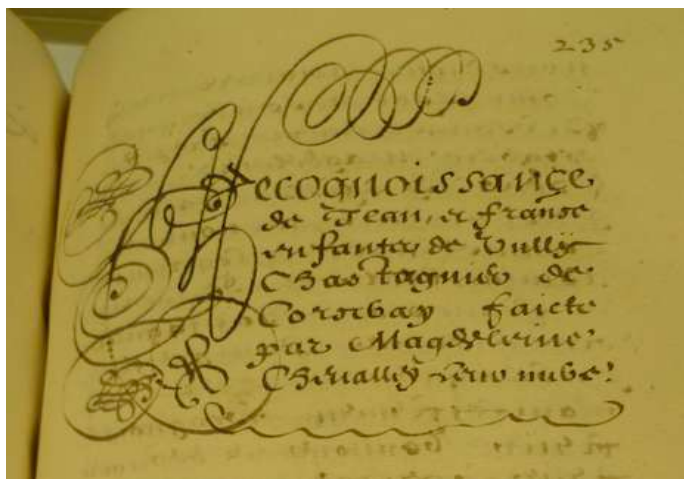 235
Recognoissance
de Jean, et franse
enfants de Vully
Chastagnier de
Corsevay faicte
par Magdeleine
Chevalley